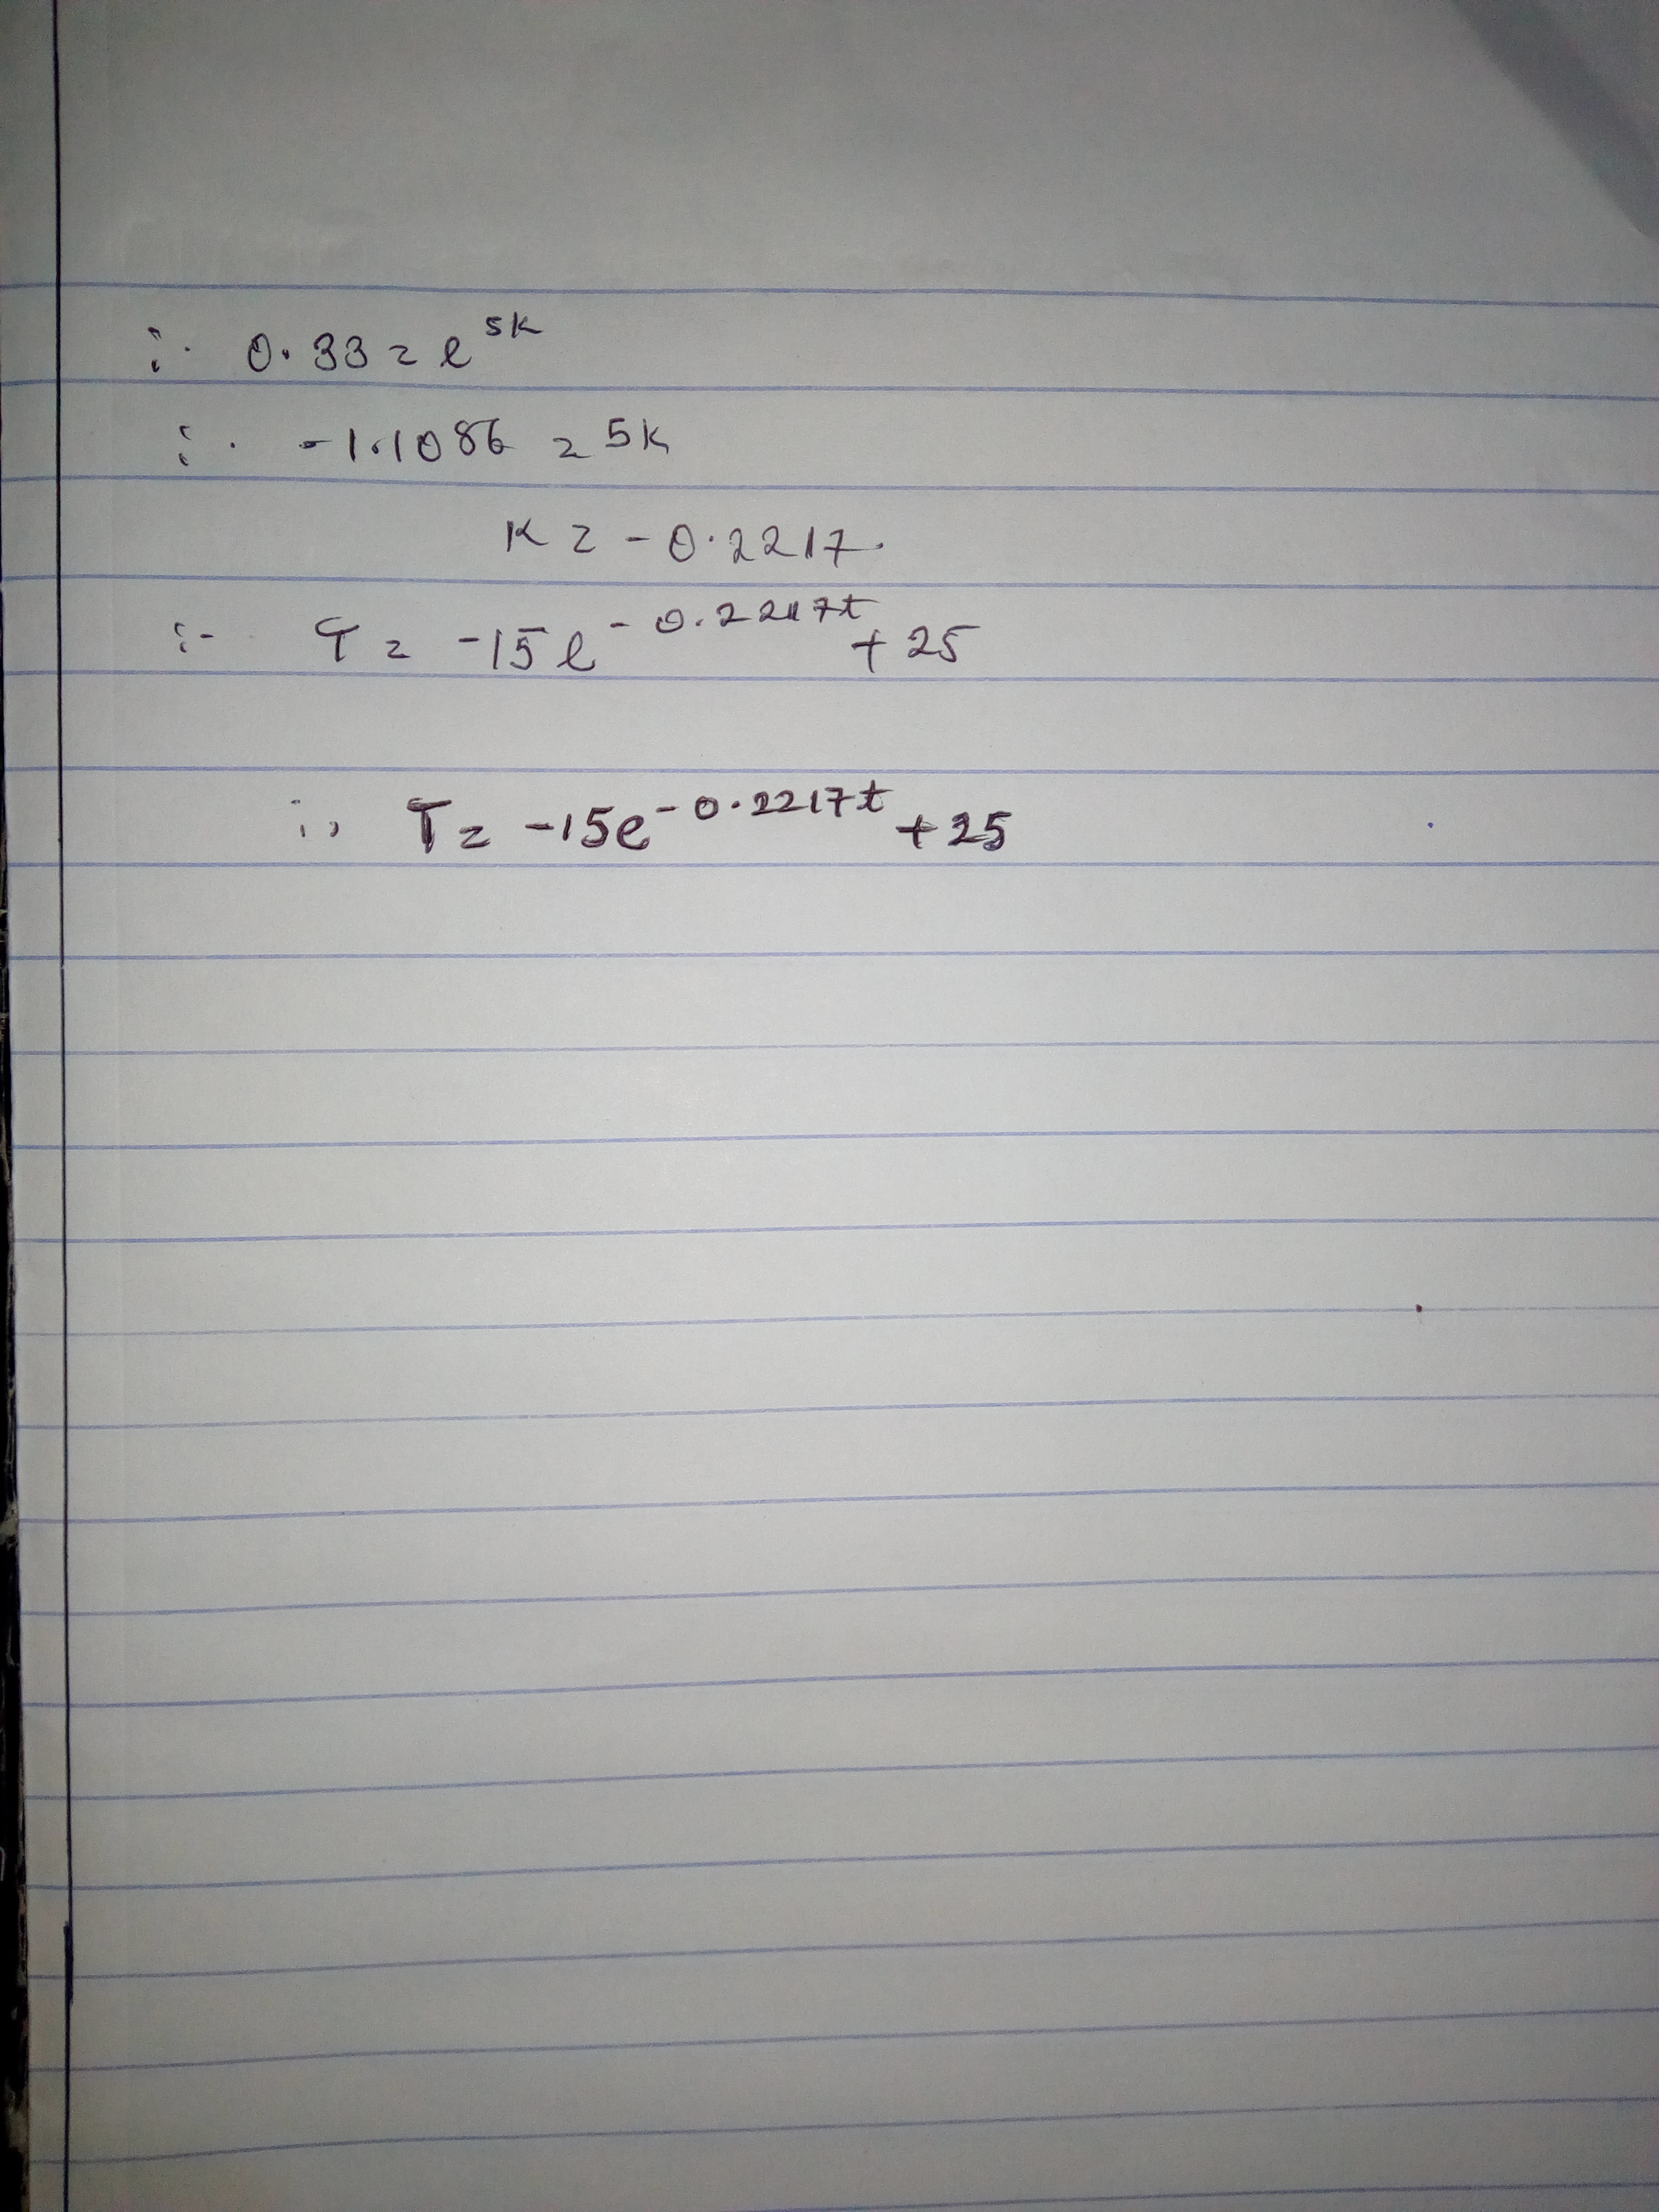 ∴ 0.33 = e^{5k}
∴ -1.1086 = 5k
k = -0.2217.
∴ T = -15e^{-0.2217t} + 25
∴ T = -15e^{-0.2217t} + 25